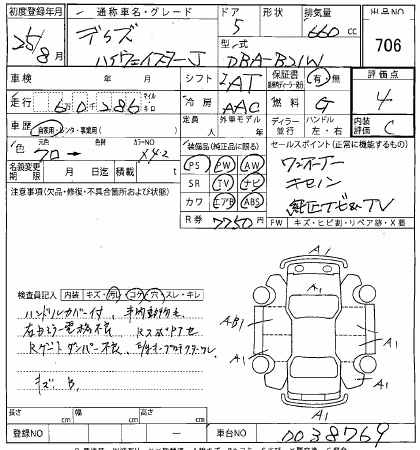 初度登録年月 通称車名・グレード ドア 形状 排気量 出品NO
25/8月 デイズ 5 660 cc 706
ハイウェイスターJ 型式 DBA-B21W
車検 年 月 シフト IAT 保証書 有・無 評価点
走行 6万0千286 キロ 冷房 AAC 燃料 G 4
車歴 自家用・レンタ・事業用( ) 定員 人 外車モデル 年 ディーラー 並行 ハンドル 左・右 内装評価 C
色 元色 クロ → 色替 カラーNO X42 装備品(純正品に限る) セールスポイント(正常に機能するもの)
PS PW AW ワンオーナー
名義変更期限 月 日迄 積載 t SR TV ナビ キセノン
注意事項(欠品・修復・不具合箇所および状態) カワ エアB ABS 純正ナビTV
R券 7750円 FW キズ・ヒビ割・リペア跡・X要
検査員記入 内装 キズ・汚れ コゲ・穴 スレ・キレ
ハンドルカバー付、
左ドアミラー電格不良、
Rゲートダンパー不良、
キズ B、
A1
A1
AB1
A1
A1
A1
A1
長さ cm 幅 cm 高さ cm
登録NO — 車台NO 0038769